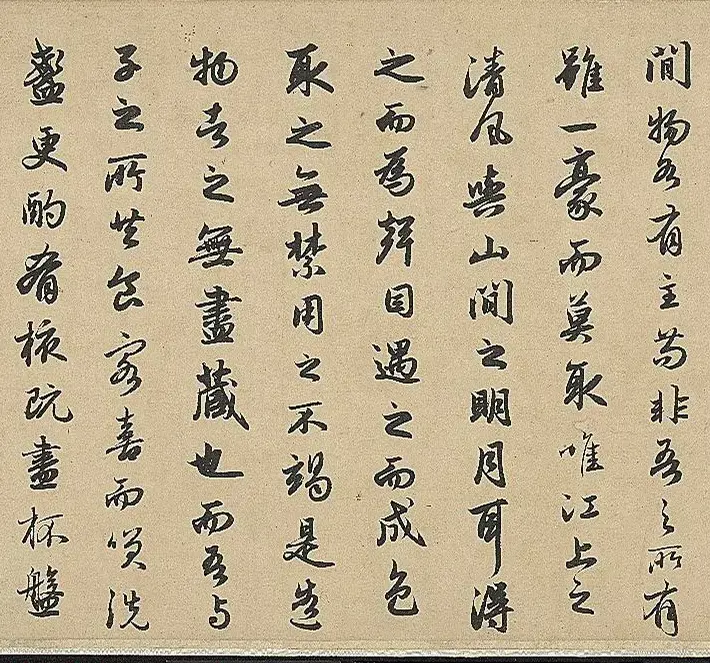 間物各有主苟非吾之所有
雖一豪而莫取唯江上之
清風與山間之明月耳得
之而為聲目遇之而成色
取之無禁用之不竭是造
物者之無盡藏也而吾與
子之所共食客喜而笑洗
盞更酌肴核既盡杯盤